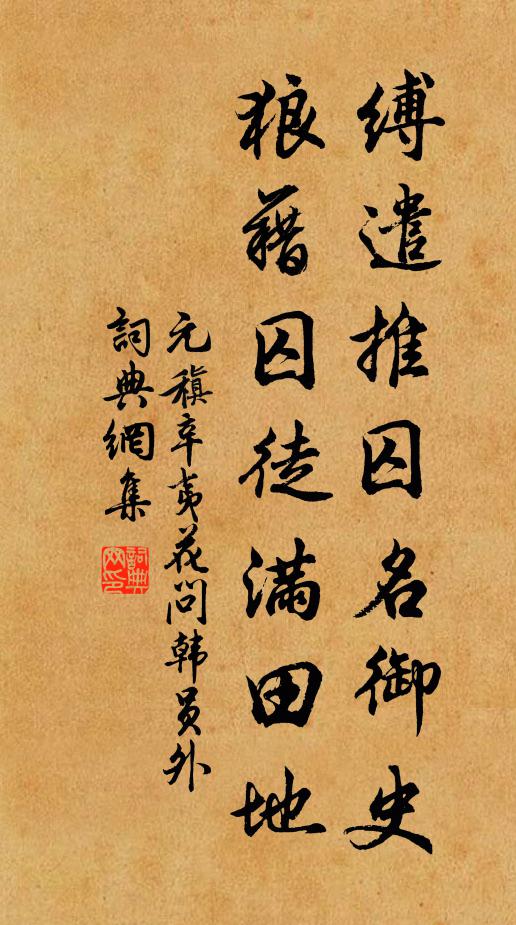 縛遣推囚名御史
狼藉囚徒滿田地
元稹辛夷花问韩员外
詞典網集
詞典网印